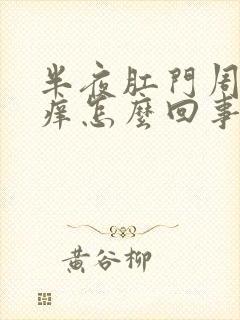 半夜肛門周
痒怎麼回事
黃谷柳